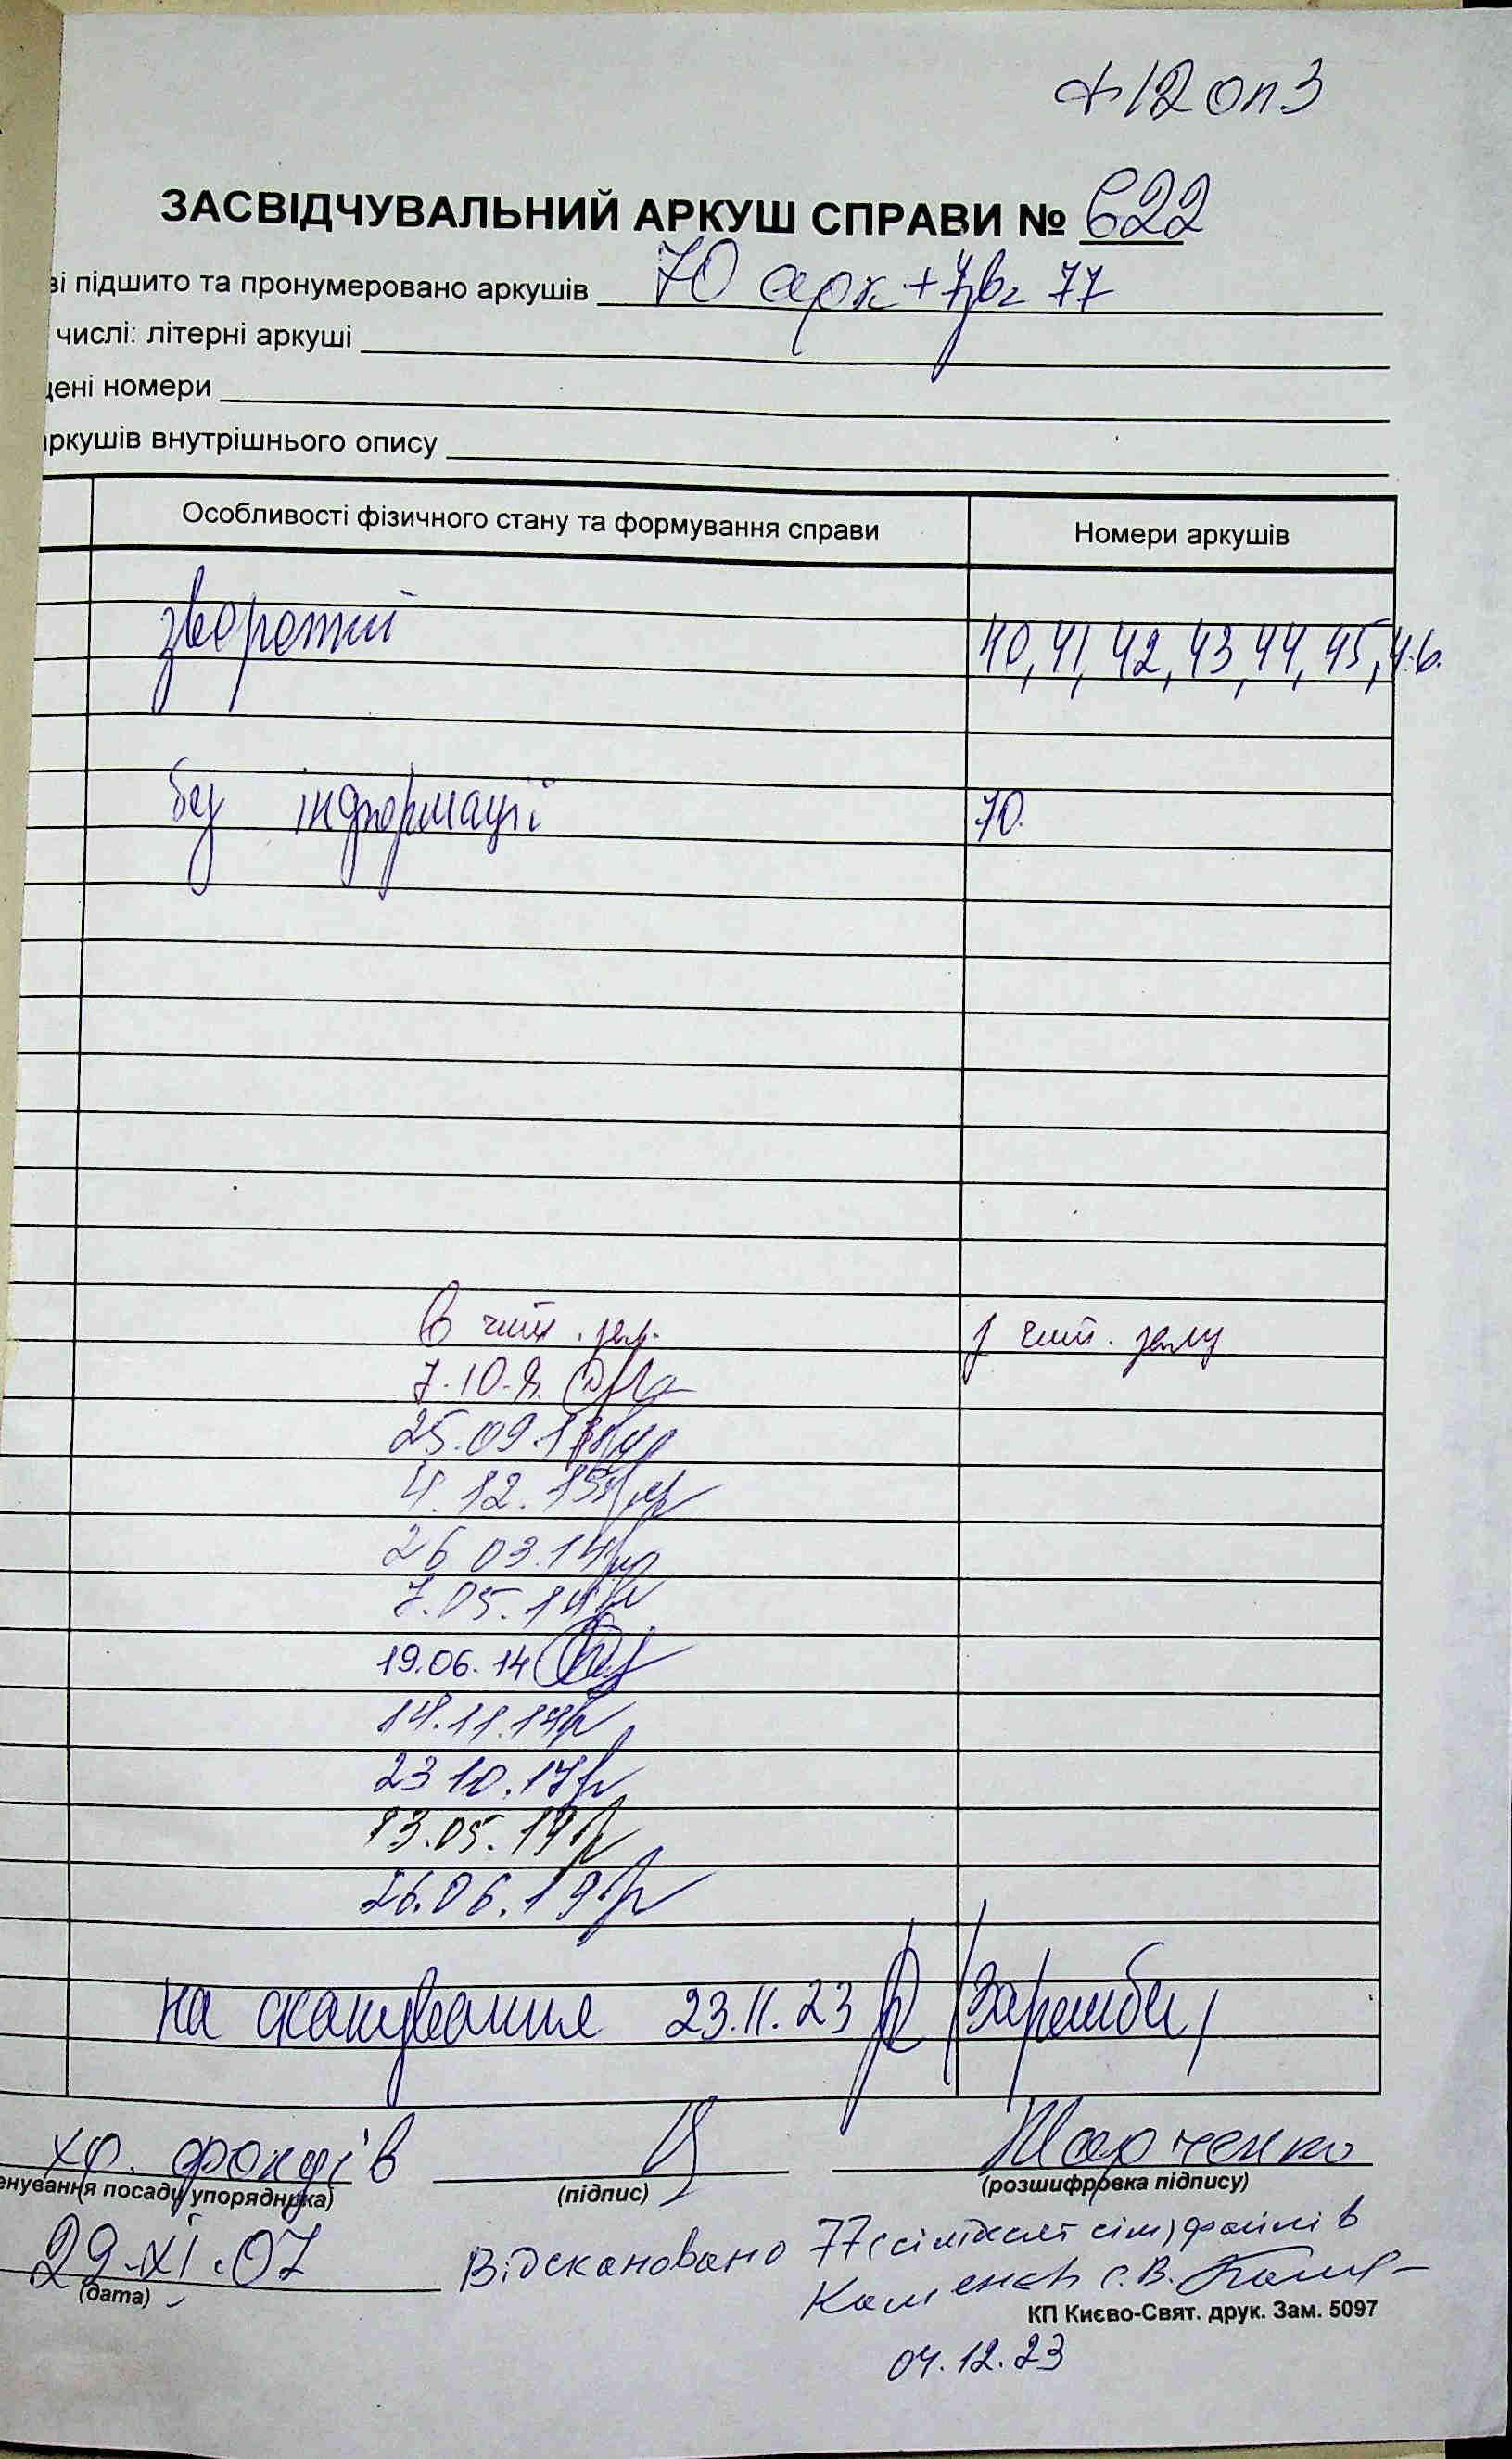 ф 12 оп 3
ЗАСВІДЧУВАЛЬНИЙ АРКУШ СПРАВИ № 622
ві підшито та пронумеровано аркушів 70 арк + 7зв = 77
числі: літерні аркуші
цені номери
аркушів внутрішнього опису
Особливості фізичного стану та формування справи Номери аркушів
зворотній 40, 41, 42, 43, 44, 45, 46.
без інформації 70.
в чит. зал. з чит. залу
7.10.
25.09.13
4.12.13
26 03.14
7.05.14
19.06.14
14.11.14
23 10.17
13.05.19
26.06.19
на сканування 23.11.23 /Заремби/
хр. фондів Марченко
енування посади упорядника) (підпис) (розшифровка підпису)
29.XI.07
(дата)
Відскановано 77 (сімдесят сім) файлів
КП Києво-Свят. друк. Зам. 5097
04.12.23